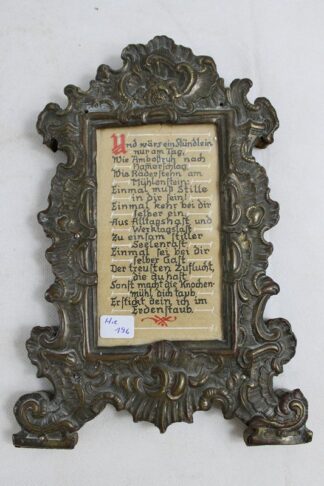 Und wärs ein Stündlein
nur am Tag,
Wie Amboßruh nach
Hammerschlag,
Wie Räderstehn am
Mühlenstein:
Einmal muß Stille
in dir sein!
Einmal kehr bei dir
selber ein,
Aus Alltagshast und
Werktagslast
Zu einsam stiller
Seelenrast.
Einmal sei bei dir
selber Gast
Der treusten Zuflucht,
die du hast
Sonst macht die Knochen-
mühl dich taub,
Erstickt dein ich im
Erdenstaub.
196